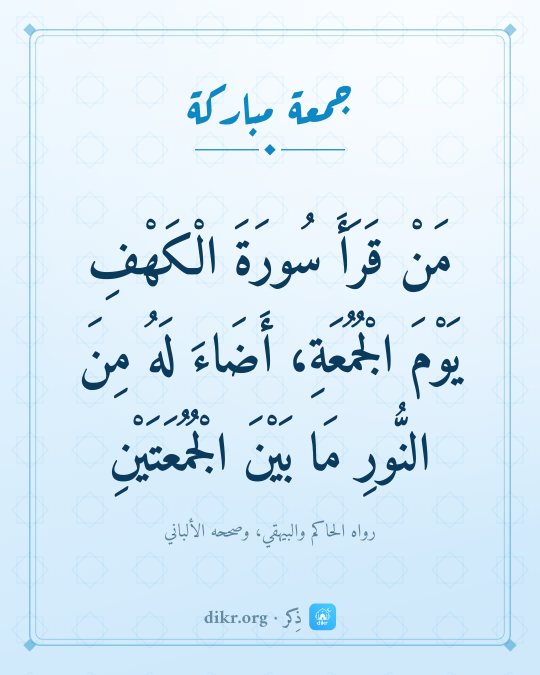 جمعة مباركة
مَنْ قَرَأَ سُورَةَ الْكَهْفِ
يَوْمَ الْجُمُعَةِ، أَضَاءَ لَهُ مِنَ
النُّورِ مَا بَيْنَ الْجُمُعَتَيْنِ
رواه الحاكم والبيهقي، وصححه الألباني
ذِكر · dikr.org
dikr